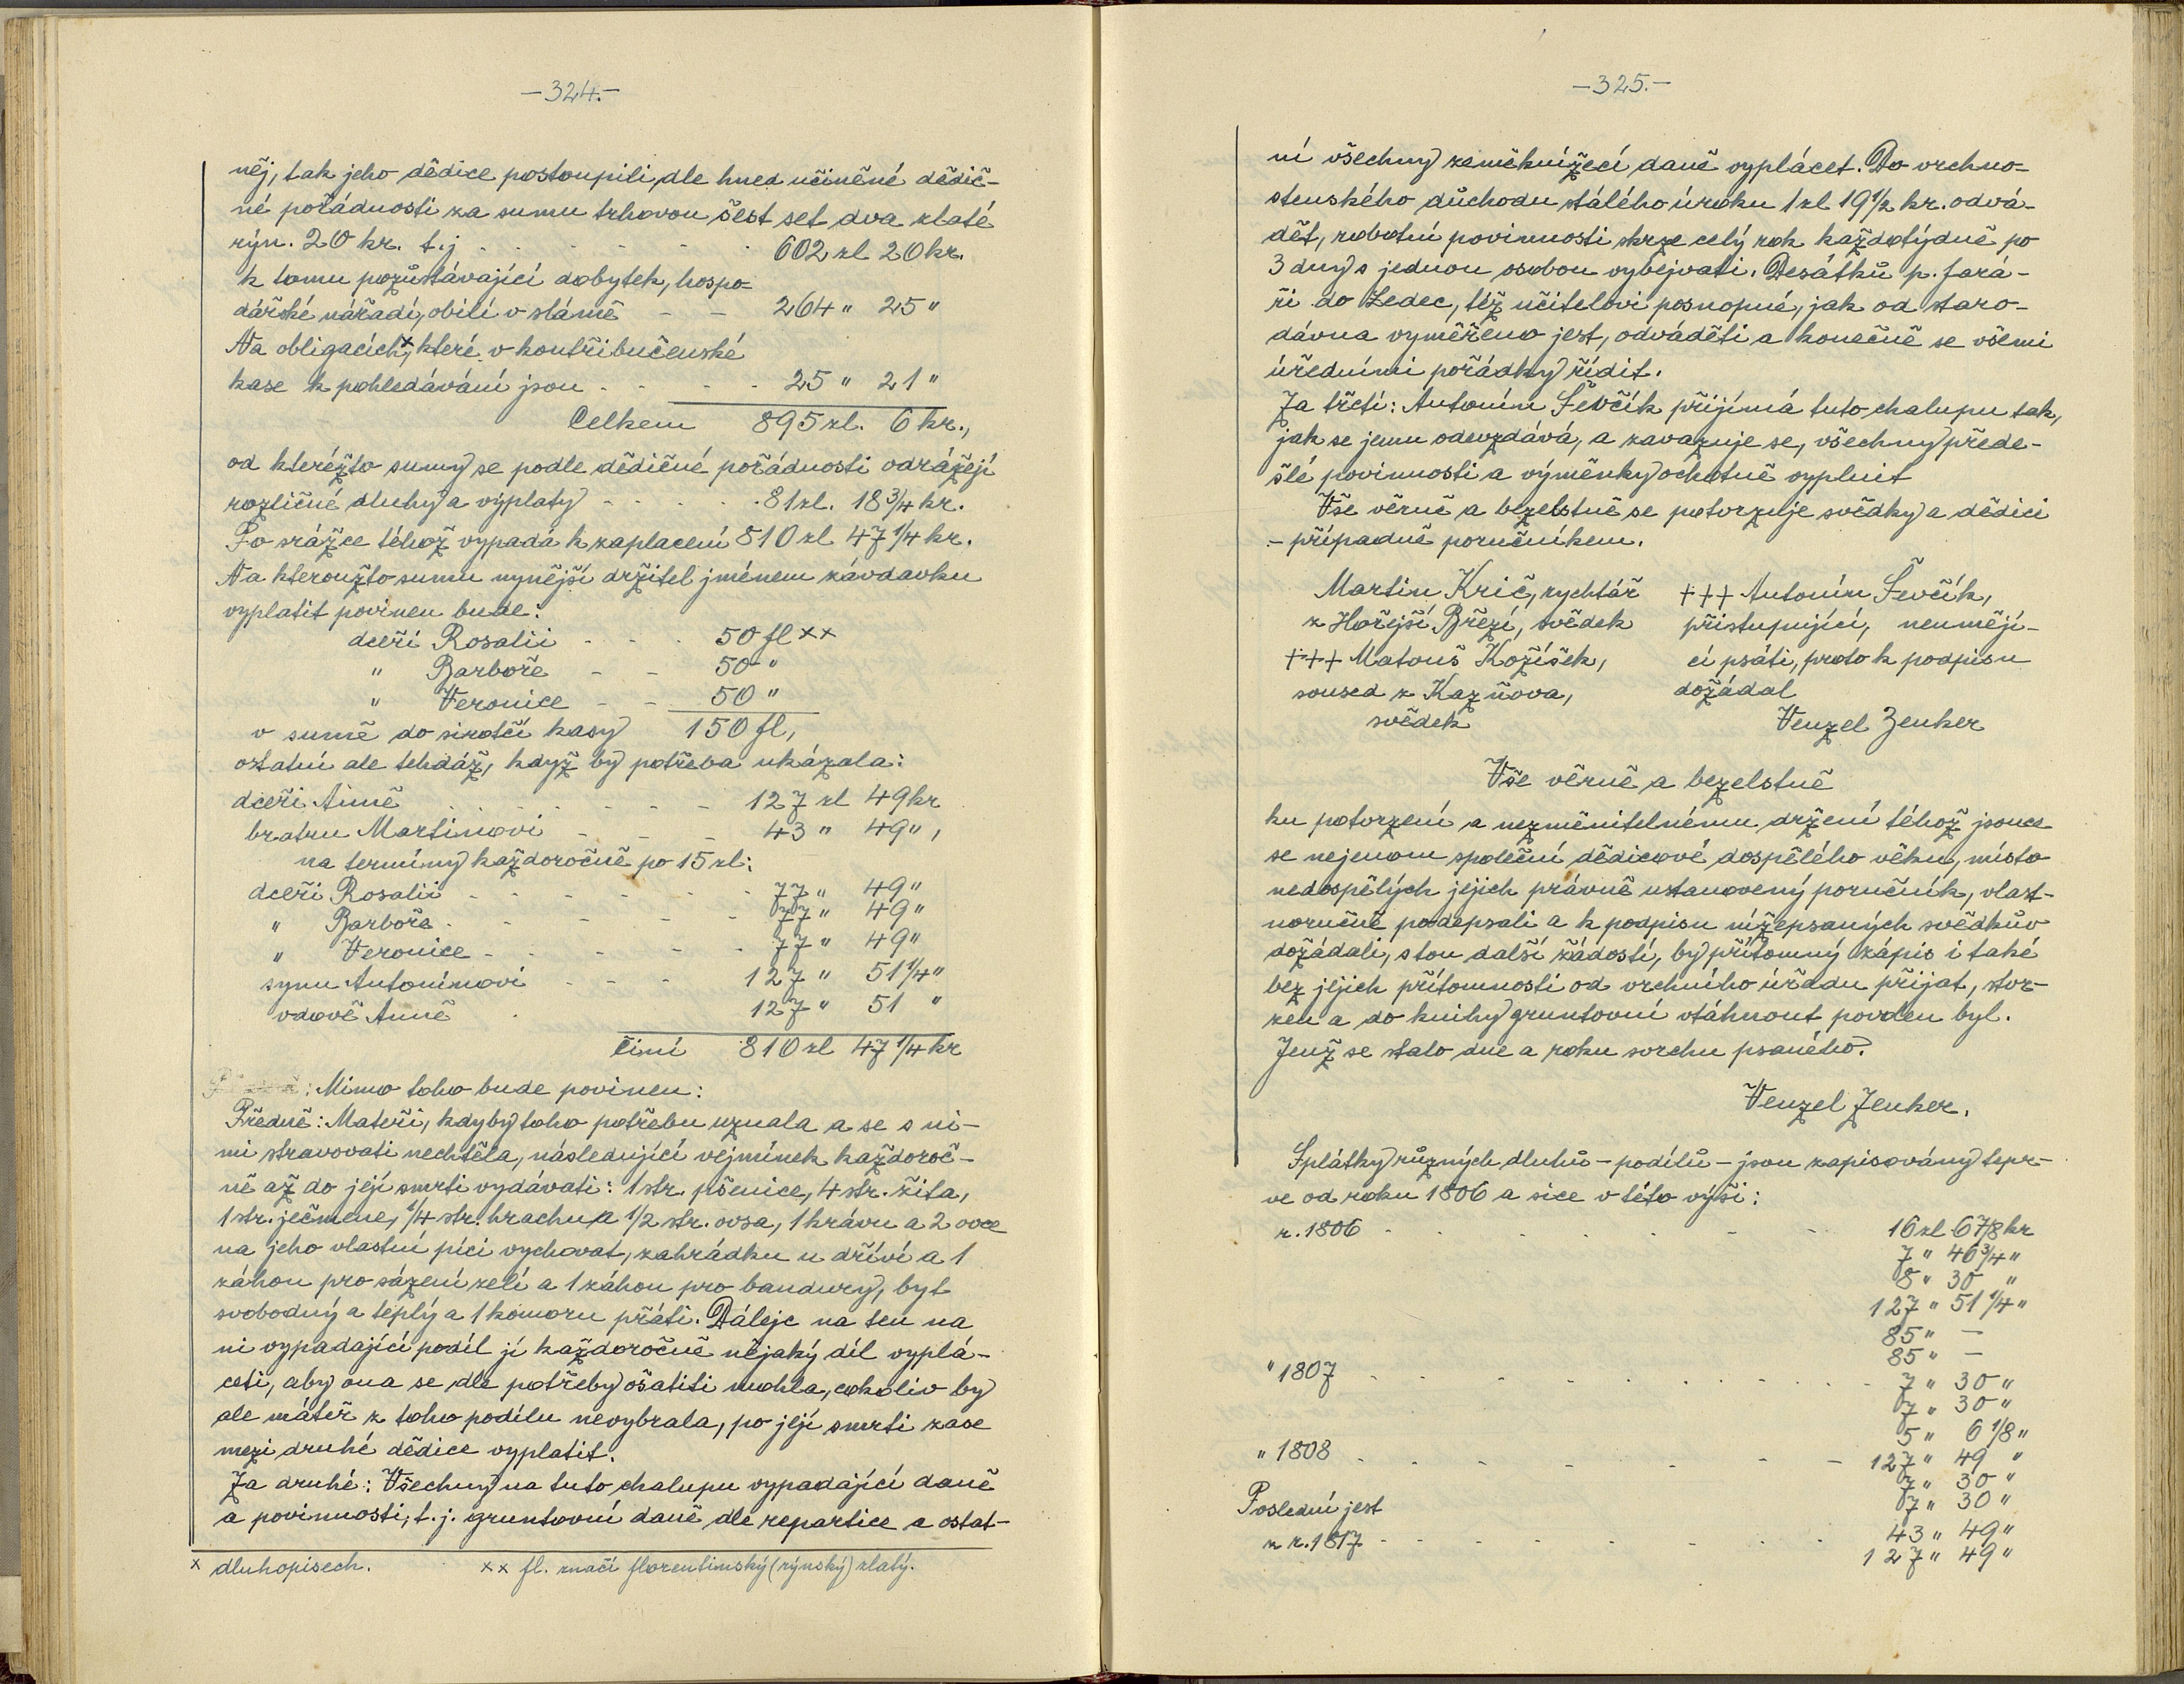 —324.—
něj, tak jeho dědice postoupili, dle hned učiněné dědič-
né pořádnosti za sumu trhovou šest set dva zlaté
rýn. 20 kr. t.j. . . . . . . 602 zl. 20 kr.
k tomu pozůstávající dobytek, hospo-
dářské nářadí, obilí v slámě — — 264 " 25 "
Na obligacích x, které v kontribučenské
kase k pohledávání jsou . . . . 25 " 21 "
Celkem 895 zl. 6 kr.,
od kteréžto sumy se podle dědičné pořádnosti odrážejí
rozličné dluhy a výplaty - - . . . 81 zl. 18 3/4 kr.
Po srážce téhož vypadá k zaplacení 810 zl 47 1/4 kr.
Na kteroužto sumu nynější držitel jménem závdavku
vyplatit povinen bude:
dceři Rosalii - - . 50 fl xx
" Barboře — — 50 "
" Veronice - - 50 "
v sumě do sirotčí kasy 150 fl,
ostatní ale tehdáž, když by potřeba ukázala:
dceři Anně . . . . - - - 127 zl 49 kr
bratru Martinovi - - - 43 " 49 ",
na termíny každoročně po 15 zl:
dceři Rosalii - - - - - - 77 " 49 "
" Barboře . - - - - 77 " 49 "
" Veronice - - - - . 77 " 49 "
synu Antonínovi - - - 127 " 51 1/4 "
vdově Anně . 127 " 51 "
činí 810 zl 47 1/4 kr
: Mimo toho bude povinen:
Předně: Mateři, kdyby toho potřebu uznala a se s ni-
mi stravovati nechtěla, následující vejmínek každoroč-
ně až do její smrti vydávati: 1 str. pšenice, 4 str. žita,
1 str. ječmene, 1/4 str. hrachu a 1/2 str. ovsa, 1 krávu a 2 ovce
na jeho vlastní píci vychovat, zahrádku u dříví a 1
záhon pro sázení zelí a 1 záhon pro bandury, byt
svobodný a teplý a 1 komoru přáti. Dáleje na ten na
ni vypadající podíl jí každoročně nějaký díl vyplá-
ceti, aby ona se dle potřeby ošatiti mohla, cokoliv by
ale máteř z toho podílu nevybrala, po její smrti zase
mezi druhé dědice vyplatit.
Za druhé: Všechny na tuto chalupu vypadající daně
a povinnosti, t.j. gruntovní daně dle repartice a ostat-
x dluhopisech. xx fl. značí florentinský (rýnský) zlatý.
—325.—
ní všechny zeměknížecí daně vyplácet. Do vrchno-
stenského důchodu stálého úroku 1 zl 19 1/2 kr. odvá-
dět, robotní povinnosti skrze celý rok každotýdně po
3 dny s jednou osobou vybejvati. Desátků p. fará-
ři do Ledec, též učitelovi posnopné, jak od staro-
dávna vyměřeno jest, odváděti a konečně se všemi
úředními pořádky řídit.
Za třetí: Antonín Ševčík přijímá tuto chalupu tak,
jak se jemu odevzdává, a zavazuje se, všechny přede-
šlé povinnosti a výměnky ochotně vyplnit
Vše věrně a bezelstně se potvrzuje svědky a dědici
- případně poručníkem.
Martin Krič, rychtář +++ Antonín Ševčík,
z Hořejší Březí, svědek přistupující, neuměji-
+++ Matouš Kožíšek, cí psáti, proto k podpisu
soused z Kazňova, dožádal
svědek Venzel Zenker
Vše věrně a bezelstně
ku potvrzení a nezměnitelnému držení téhož jsouce
se nejenom společní dědicové dospělého věku, místo
nedospělých jejich právně ustanovený poručník, vlast-
noručně podepsali a k podpisu nížepsaných svědkův
dožádali, s tou další žádostí, by přítomný zápis i také
bez jejich přítomnosti od vrchního úřadu přijat, stvr-
zen a do knihy gruntovní vtáhnout povolen byl.
Jenž se stalo dne a roku svrchu psaného.
Venzel Zenker.
Splátky různých dluhů - podílů - jsou zapisovány tepr-
ve od roku 1806 a sice v této výši:
r. 1806 - . . . . . - - 16 zl 6 7/8 kr
7 " 46 3/4 "
8 " 30 "
127 " 51 1/4 "
85 " —
85 " —
" 1807 - - . - - . . . . . - 7 " 30 "
7 " 30 "
5 " 6 1/8 "
" 1808 - . - . - - - - 127 " 49 "
7 " 30 "
7 " 30 "
Poslední jest
z r. 1817 - - - - . - - . 43 " 49 "
127 " 49 "